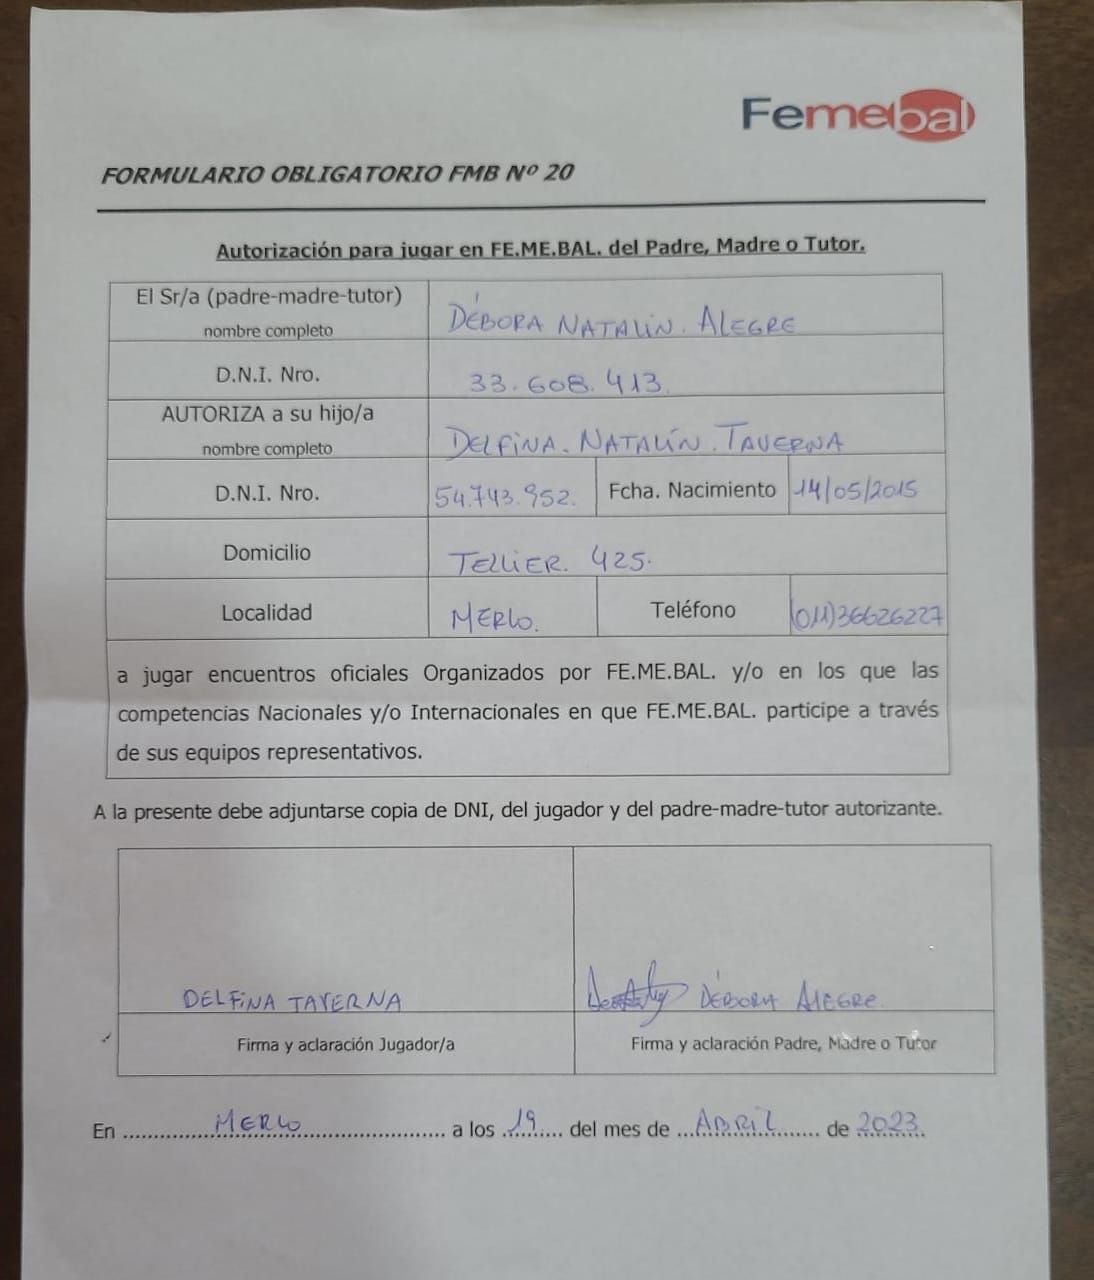 Femebal
FORMULARIO OBLIGATORIO FMB Nº 20
Autorización para jugar en FE.ME.BAL. del Padre, Madre o Tutor.
El Sr/a (padre-madre-tutor)
nombre completo
DÉBORA NATALIN. ALEGRE
D.N.I. Nro.
33.608.413.
AUTORIZA a su hijo/a
nombre completo
DELFINA. NATALÍN. TAVERNA
D.N.I. Nro.
54.743.952.
Fcha. Nacimiento
14/05/2015
Domicilio
TELLIER. 425.
Localidad
MERLO.
Teléfono
(011)36626227
a jugar encuentros oficiales Organizados por FE.ME.BAL. y/o en los que las
competencias Nacionales y/o Internacionales en que FE.ME.BAL. participe a través
de sus equipos representativos.
A la presente debe adjuntarse copia de DNI, del jugador y del padre-madre-tutor autorizante.
DELFINA TAVERNA
DÉBORA ALEGRE.
Firma y aclaración Jugador/a
Firma y aclaración Padre, Madre o Tutor
En MERLO a los 19 del mes de ABRIL de 2023